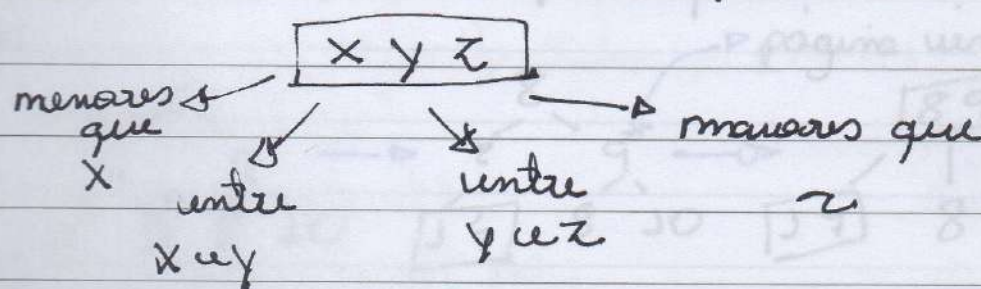 x y z
menores
que
x
entre
x e y
entre
y e z
maiores que
z